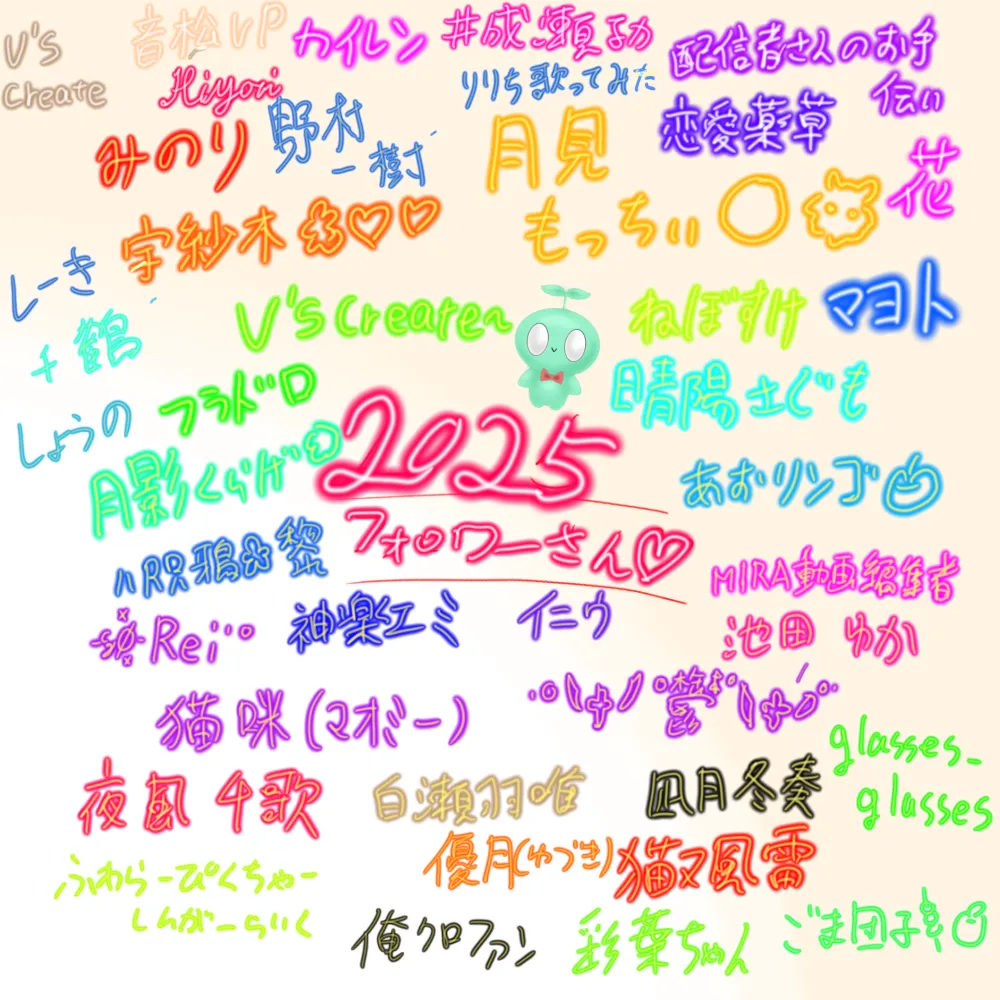 V's
Create
音松VP
カイルン
#成瀬ネカ
配信者さんのお手
伝い
Hiyori
りりち歌ってみた
みのり
野村
一樹
月見
もっちぃ
恋愛薬草
花
宇紗木
しーき
千鶴
V'sCreate〜
ねぼすけ
マヨト
フラドロ
晴陽さぐも
しょうの
2025
月影くらげ
あおリンゴ
フォロワーさん♡
MIRA動画編集者
Rei
神楽エミ
イニウ
池田 ゆか
猫咪(マボー)
鬱
glasses_
glasses
夜風 千歌
白瀬羽唯
凪月冬奏
優月(ゆづき)
猫又風雷
ふわらーぴくちゃー
しんがーらいく
俺クロファン
彩葉ちゃん
ごま団子